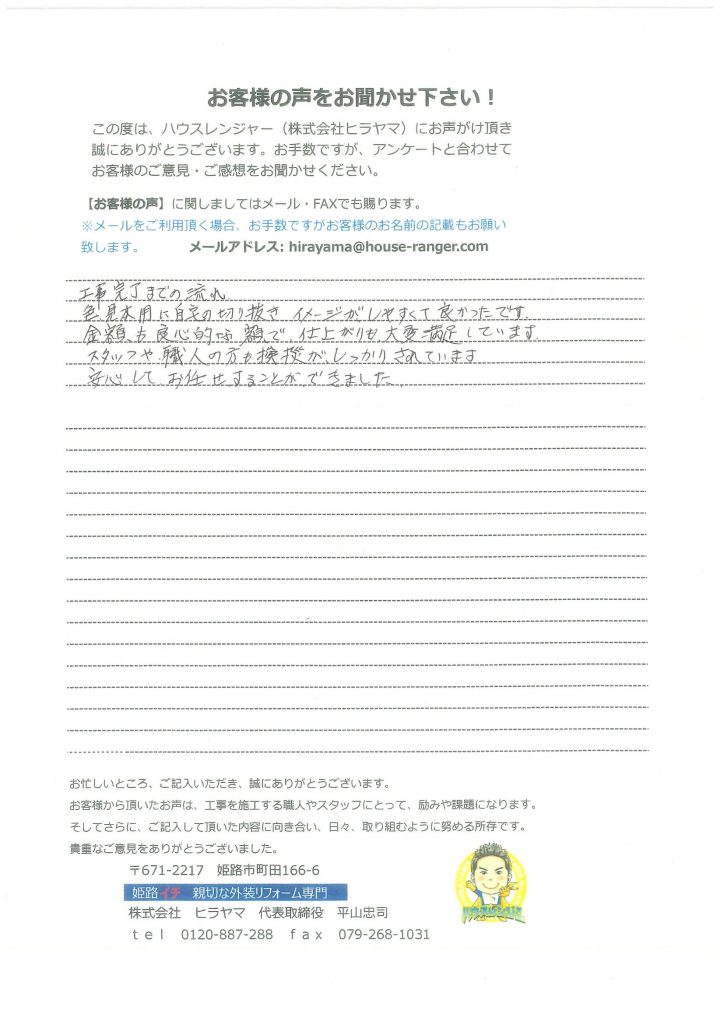 お客様の声をお聞かせ下さい！
この度は、ハウスレンジャー（株式会社ヒラヤマ）にお声がけ頂き
誠にありがとうございます。お手数ですが、アンケートと合わせて
お客様のご意見・ご感想をお聞かせください。
【お客様の声】に関しましてはメール・FAXでも賜ります。
※メールをご利用頂く場合、お手数ですがお客様のお名前の記載もお願い
致します。 メールアドレス: hirayama@house-ranger.com
工事完了までの流れ
色見本用に自宅の切り抜き イメージがしやすくて良かったです.
金額も良心的な額で、仕上がりも大変満足しています.
スタッフや職人の方も挨拶がしっかりされています
安心してお任せすることができました.
お忙しいところ、ご記入いただき、誠にありがとうございます。
お客様から頂いたお声は、工事を施工する職人やスタッフにとって、励みや課題になります。
そしてさらに、ご記入して頂いた内容に向き合い、日々、取り組むように努める所存です。
貴重なご意見をありがとうございました。
〒671-2217 姫路市町田166-6
姫路イチ 親切な外装リフォーム専門
株式会社 ヒラヤマ 代表取締役 平山忠司
ｔｅｌ 0120-887-288 ｆａｘ 079-268-1031